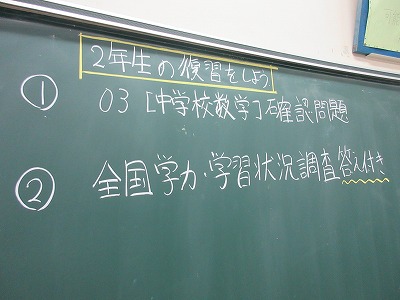 2年生の復習をしよう
① 03 [中学校数学]確認問題
② 全国学力・学習状況調査答え付き